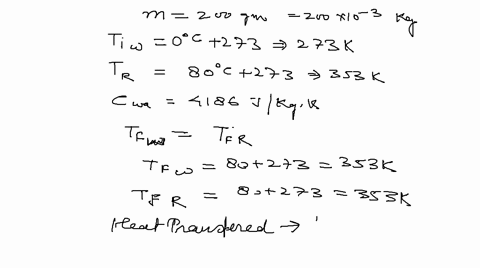 m = 200 gm = 200 × 10⁻³ Kg
Tiω = 0°C + 273 ⇒ 273 K
T_R = 80°C + 273 ⇒ 353 K
Cωa = 4186 J/Kg.K
T_Fω = T_F R
T_F ω = 80 + 273 = 353K
T_F R = 80 + 273 = 353K
Heat Transfered →